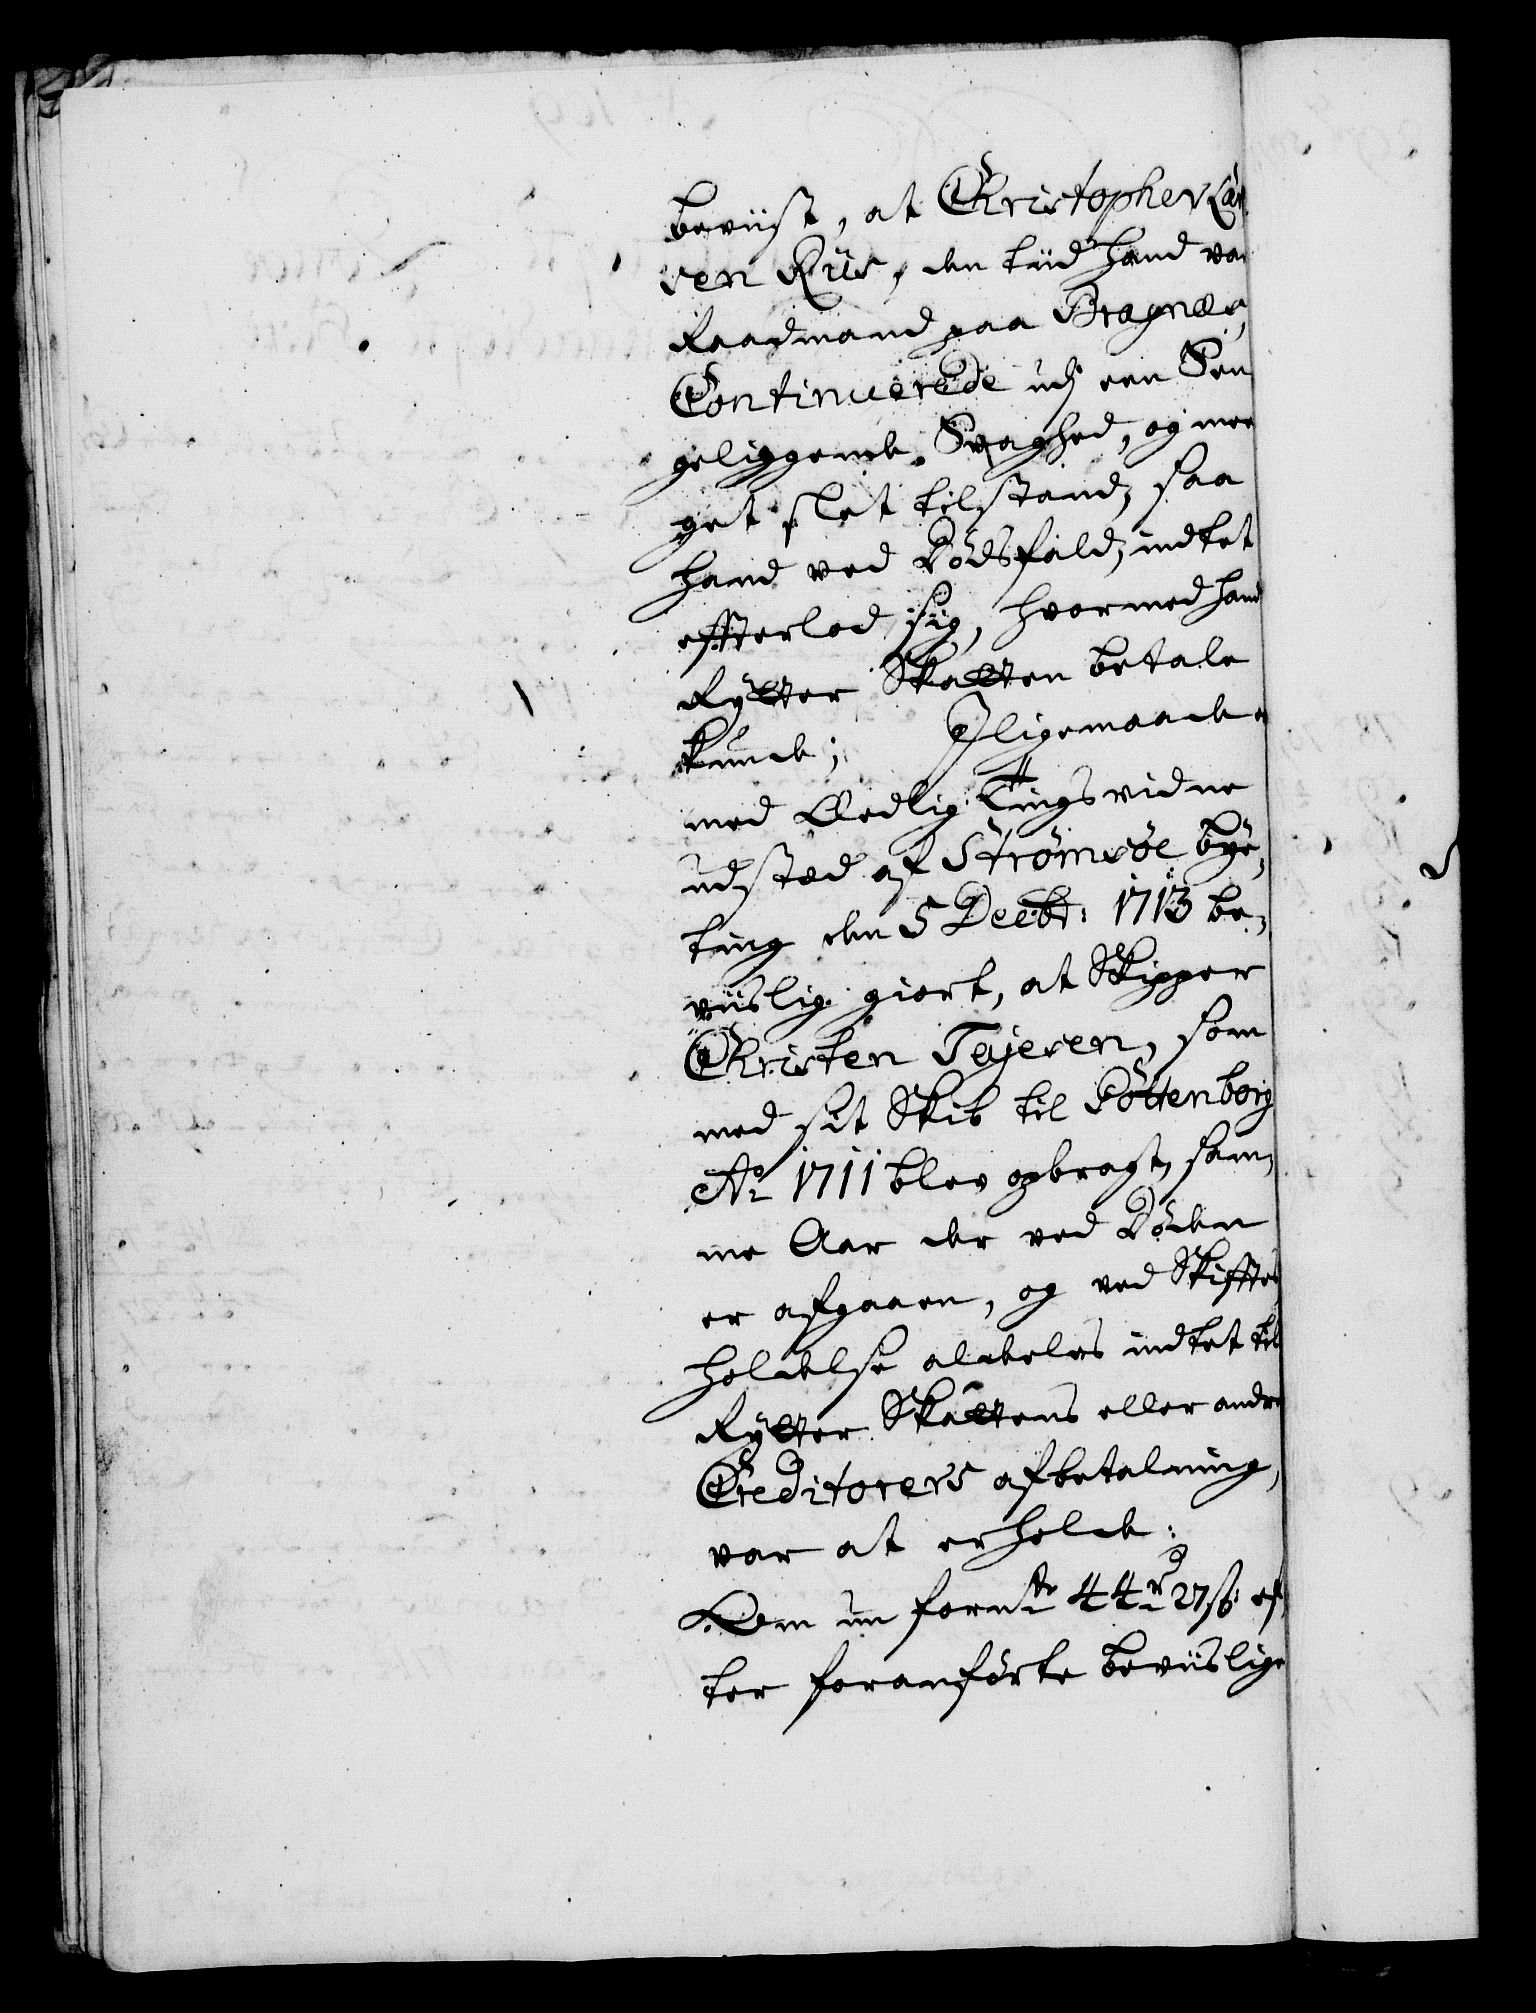 beviist, at Christopher Lar
sen Riis, den tiid hand var
Raadmand paa Bragnæs,
Continuerede udj een Sen
geliggende Svaghed, og mee
get slet tilstand, saa
hand ved Dødsfald, indtet
effterlod sig, hvormed hand
Rytter Skatten betale
kunde; Jligemaade er
med Lovlig Tingsvidne
udsted af Strømsøe bye,
ting den 5 Decbr: 1713 be,
viislig giort, at Skipper
Christen Tajesen, som
med sit Skib til Gøttenborg
Ao 1711 blev opbragt, sam,
me Aar der ved Døden
er afgaaen, og ved Skifftes
holdelse aldeles indtet til
Rytter Skattens eller andre
Creditorers afbetalning,
var at erholde:
Om nu fornte 44 rd 27 ß: ef
ter foranførte beviislige